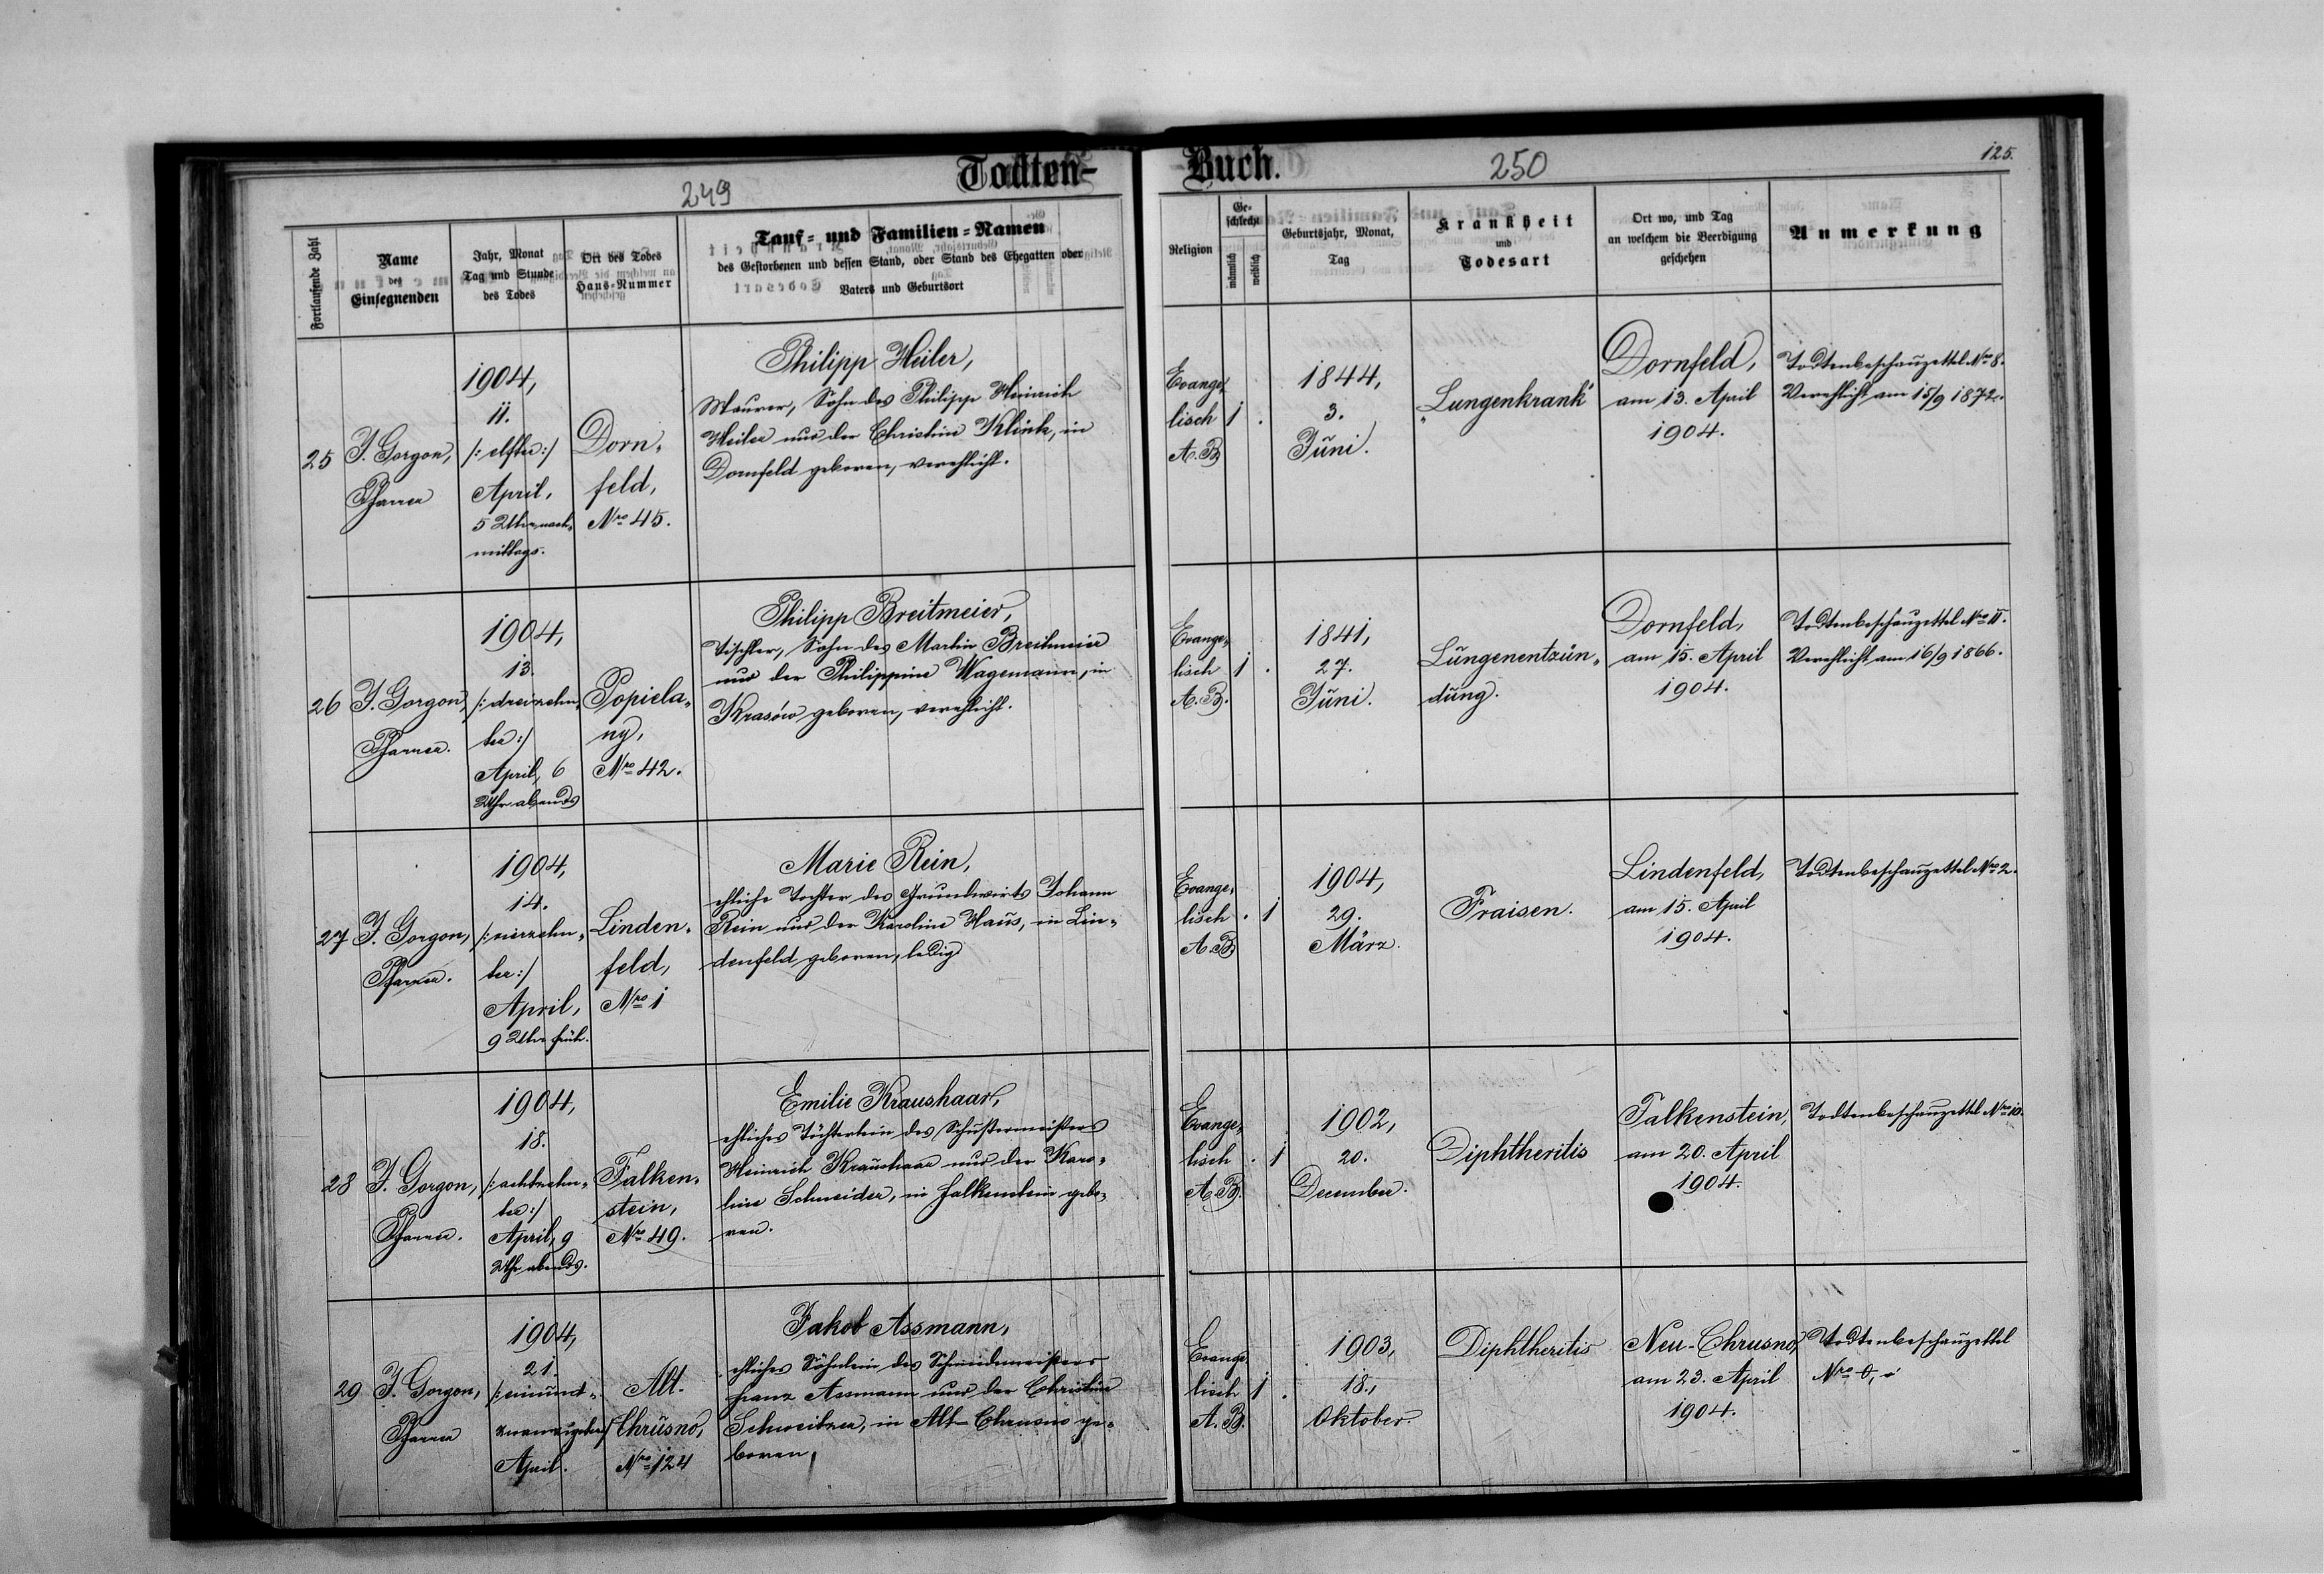 Todten-
Buch.
249
250
125.
Fortlaufende Zahl
Name
des
Einsegnenden
Jahr, Monat
Tag und Stunde
des Todes
Ort des Todes
Haus-Nummer
Tauf- und Familien-Namen
des Gestorbenen und dessen Stand, oder Stand des Ehegatten oder
Vaters und Geburtsort
Religion
Ge-
schlecht
männlich
weiblich
Geburtsjahr, Monat,
Tag
Krankheit
und
Todesart
Ort wo, und Tag
an welchem die Beerdigung
geschehen
Anmerkung
25
J. Gorgon,
Pfarrer
1904,
11.
/: elfter :/
April,
5 Uhr nach-
mittags.
Dorn-
feld,
Nro 45.
Philipp Heiler,
Maurer, Sohn des Philipp Heinrich
Heiler und der Christine Klink, in
Dornfeld geboren, verehlicht.
Evange-
lisch
A. B
1 .
1844,
3.
Juni.
Lungenkrank
Dornfeld,
am 13. April
1904.
Todtenbeschauzettel Nro 8.
Verehlicht am 15/9 1872.
26
J. Gorgon,
Pfarrer.
1904,
13.
/: dreizehn-
ter :/
April, 6
Uhr abends
Popiela-
ny,
Nro 42.
Philipp Breitmeier,
Tischler, Sohn des Martin Breitmeier
und der Philippine Wagemann, in
Krasów geboren, verehlicht.
Evange-
lisch
A. B.
1 .
1841,
27.
Juni.
Lungenentzün-
dung.
Dornfeld,
am 15. April
1904.
Todtenbeschauzettel Nro 11.
Verehlicht am 16/9 1866.
27
J. Gorgon,
Pfarrer.
1904,
14.
/: vierzehn-
ter :/
April,
9 Uhr früh.
Linden-
feld,
Nro 1
Marie Rein,
ehliche Tochter des Grundwirts Johann
Rein und der Karoline Haus, in Lin-
denfeld geboren, ledig
Evange-
lisch
A. B
. 1
1904,
29.
März.
Fraisen.
Lindenfeld,
am 15. April
1904.
Todtenbeschauzettel Nro 2.
28
J. Gorgon,
Pfarrer.
1904,
18.
/: achtzehn-
ter :/
April, 9
Uhr abends.
Falken-
stein,
Nro 49.
Emilie Kraushaar,
ehliches Töchterlein des Schustermeisters
Heinrich Kraushaar und der Karo-
line Schneider, in Falkenstein gebo-
ren.
Evange-
lisch
A. B.
. 1
1902,
20.
December.
Diphtheritis
Falkenstein,
am 20. April
1904.
Todtenbeschauzettel Nro 10.
29
J. Gorgon,
Pfarrer
1904,
21.
/: einund-
zwanzigster :/
April.
Alt-
Chrusno,
Nro 124
Jakob Assmann,
ehliches Söhnlein des Schmiedemeisters
Franz Assmann und der Christine
Schweitzer, in Alt-Chrusno ge-
boren,
Evange-
lisch
A. B.
1 .
1903,
18.,
Oktober.
Diphtheritis
Neu-Chrusno,
am 23. April
1904.
Todtenbeschauzettel
Nro